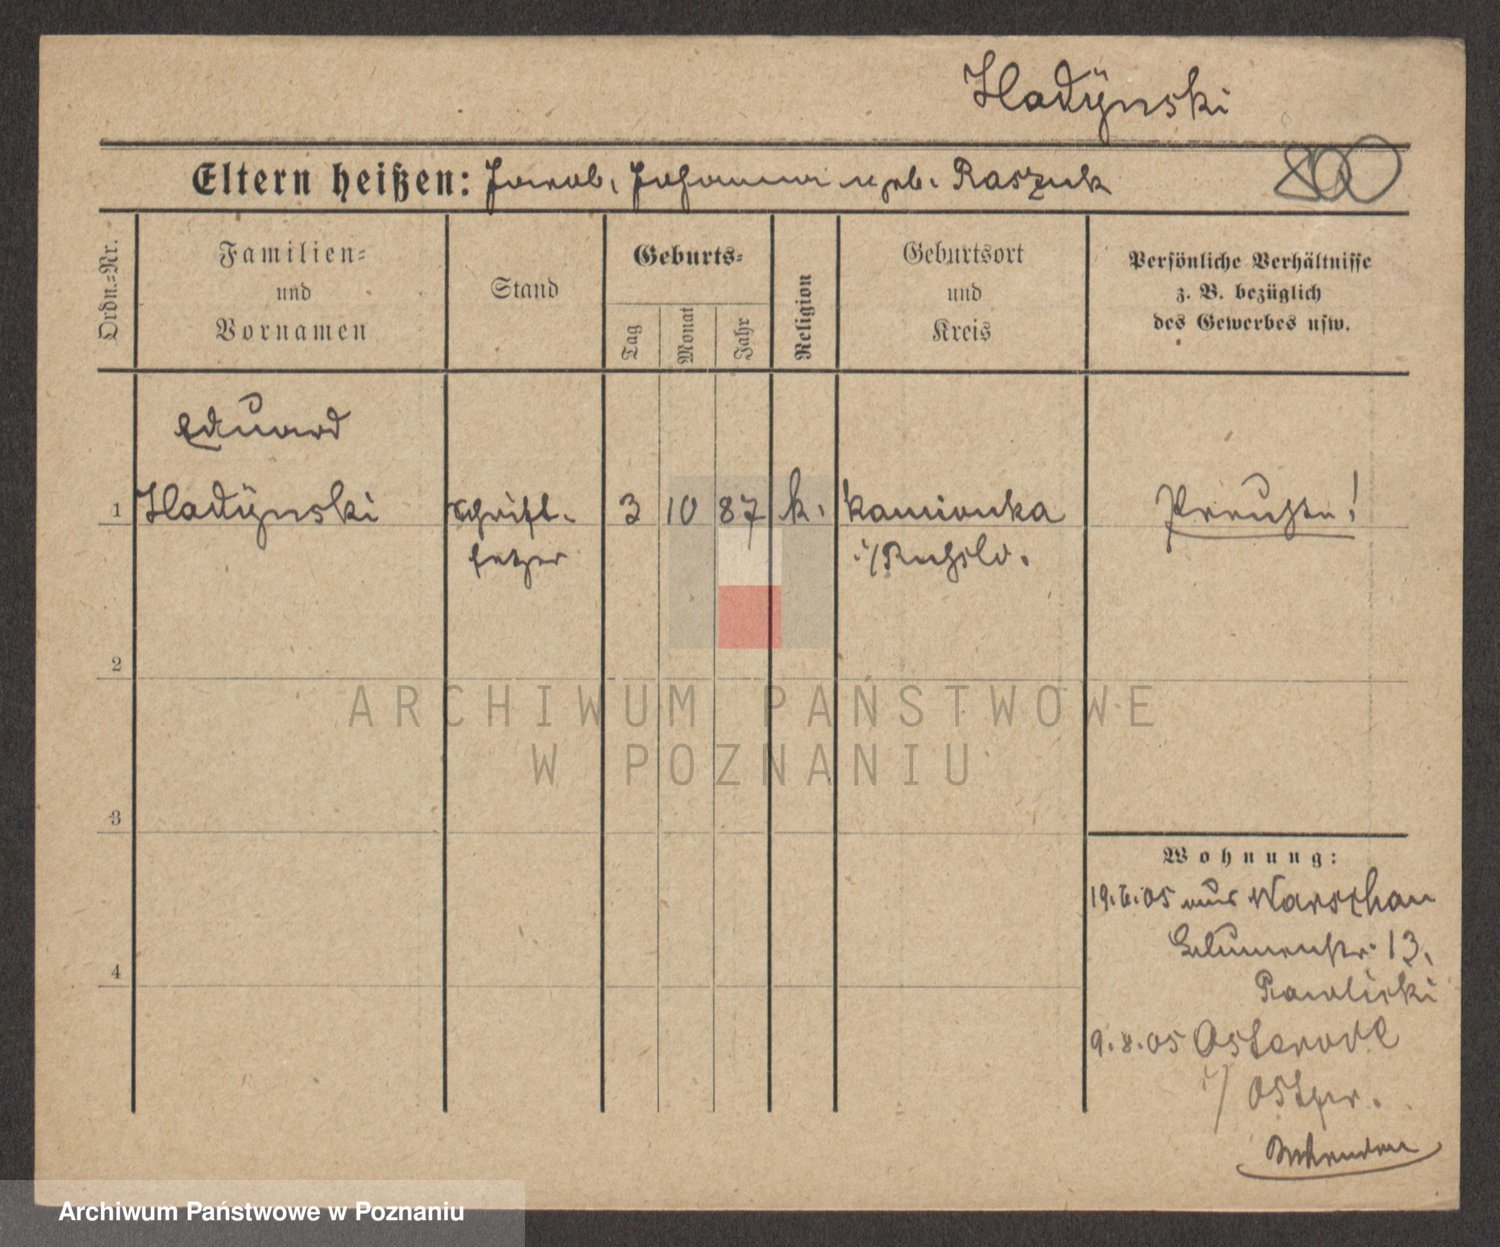 Hadÿnski
Eltern heißen: Jacob, Johanna geb. Raszuk
Ordn.=Nr.
Familien=
und
Vornamen
Stand
Geburts=
Tag
Monat
Jahr
Religion
Geburtsort
und
Kreis
Persönliche Verhältnisse
z. B. bezüglich
des Gewerbes usw.
Eduard
1 Hadÿnski Schrift- 3 10 87 k. Kamionka Preuße!
setzer i/Rußld.
2
ARCHIWUM PAŃSTWOWE
W POZNANIU
3
4
Wohnung:
19.6.05 aus Warschau
Blumenstr. 13.
Pawlicki
9.8.05 Osterode
i/ Ostpr.
Archiwum Państwowe w Poznaniu